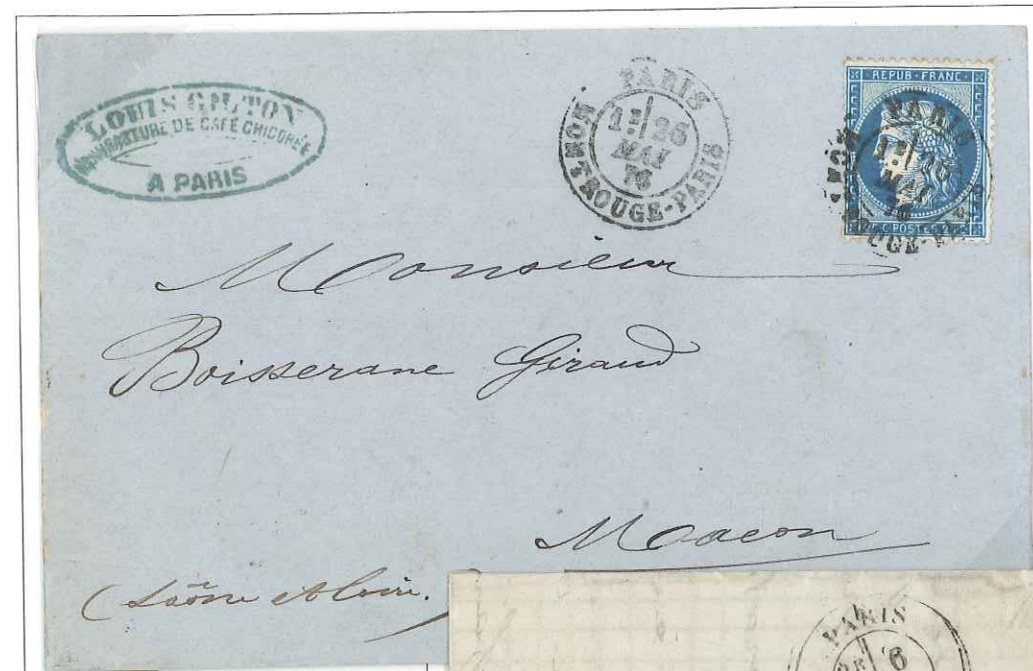 LOUIS GILTON
MANUFACTURE DE CAFÉ CHICORÉE
A PARIS
PARIS
1E/ 26
MAI
76
MONTROUGE-PARIS
REPUB·FRANC
PARIS
MAI
POSTES
Monsieur
Boisserane Giraud
Macon
(Saône et Loire.)
PARIS
6